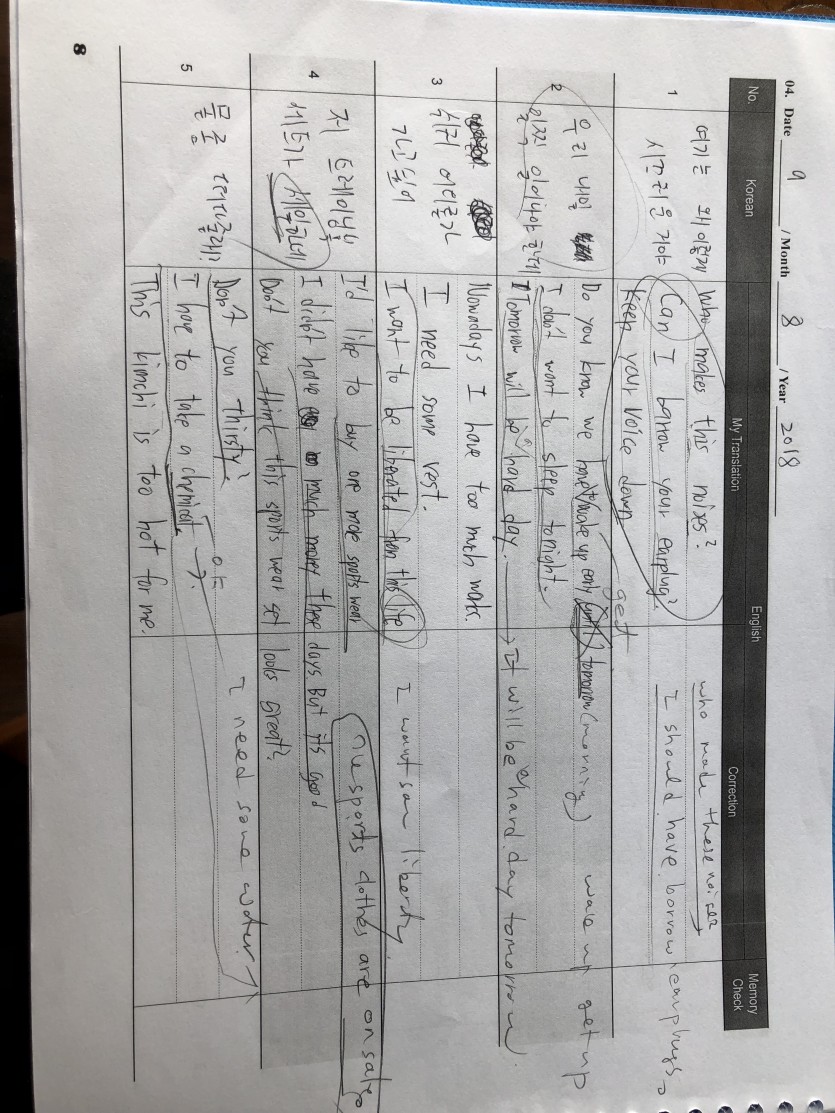 04. Date 9 / Month 8 / Year 2018
No. Korean My Translation English Correction Memory Check
1
여기는 왜이렇게
시끄러운 거야
Who makes this noises?
Can I borrow your earplug?
Keep your voice down
who made these noises
I should have borrow earplugs.
2
우리 내일
일찍 일어나야 한대
Do you know we have to wake up early tomorrow (morning)
get
wake up get up
I don't want to sleep tonight.
Tomorrow will be a hard day. → It will be a hard day tomorrow
3
Nowadays I have too much work.
I need some rest.
I want to be liberated from this life
I want some liberty
4
저 트레이닝복
세트가 세일한대
I'd like to buy one more sports wear
I didn't have much money these days But it's good
Don't you think this sports wear set looks great?
sports clothes are on sale
5
Don't you thirsty?
I have to take a chemical
This kimchi is too hot for me.
or
I need some water
8